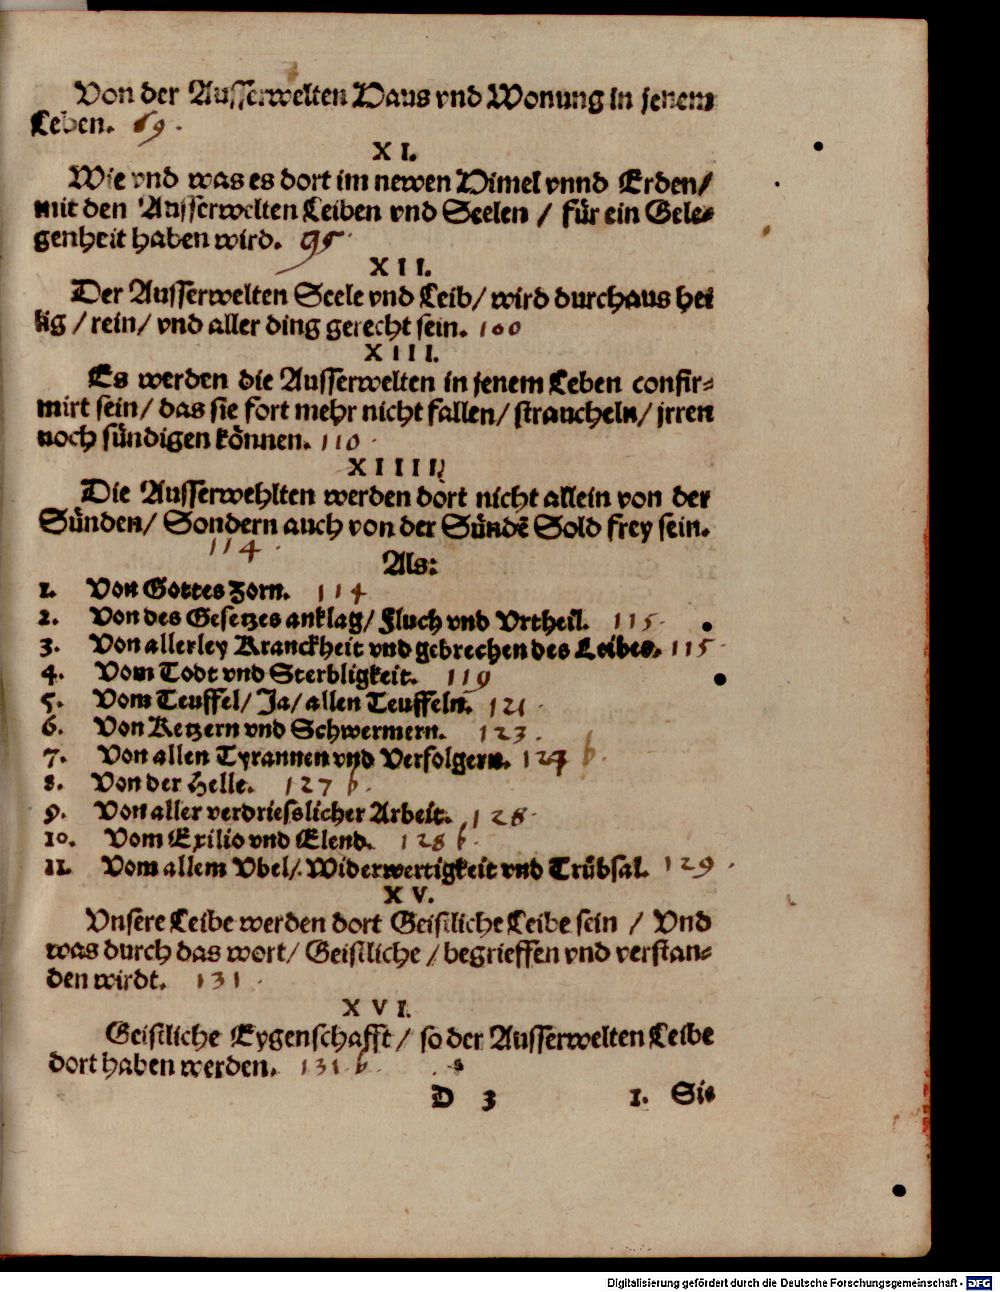 Von der Ausserwelten Haus vnd Wonung in jenem
Leben. 69.
XI.
Wie vnd was es dort im newen Himel vnnd Erden/
mit den Ausserwelten Leiben vnd Seelen / für ein Gele-
genheit haben wird. 95.
XII.
Der Ausserwelten Seele vnd Leib/ wird durchaus hei
lig / rein/ vnd aller ding gerecht sein. 100
XIII.
Es werden die Ausserwelten in jenem Leben confir-
mirt sein/ das sie fort mehr nicht fallen/ straucheln/ jrren
noch sündigen können. 110.
XIIII.
Die Ausserwehlten werden dort nicht allein von der
Sünden/ Sondern auch von der Sündē Sold frey sein.
114.
Als:
1. Von Gottes zorn. 114
2. Von des Gesetzes anklag/ Fluch vnd Vrtheil. 115.
3. Von allerley Kranckheit vnd gebrechen des Leibes. 115.
4. Vom Todt vnd Sterbligkeit. 119
5. Vom Teuffel/ Ja/ allen Teuffeln. 121.
6. Von Ketzern vnd Schwermern. 123.
7. Von allen Tyrannen vnd Verfolgern. 124 b.
8. Von der Helle. 127 b.
9. Von aller verdrieslicher Arbeit. 128.
10. Vom Exilio vnd Elend. 128 b.
11. Vom allem Vbel/ Widerwertigkeit vnd Trübsal. 129.
XV.
Vnsere Leibe werden dort Geistliche Leibe sein / Vnd
was durch das wort/ Geistliche / begrieffen vnd verstan-
den wirdt. 131.
XVI.
Geistliche Eygenschafft / so der Ausserwelten Leibe
dort haben werden. 131 b.
D 3 1. Sie
Digitalisierung gefördert durch die Deutsche Forschungsgemeinschaft - DFG